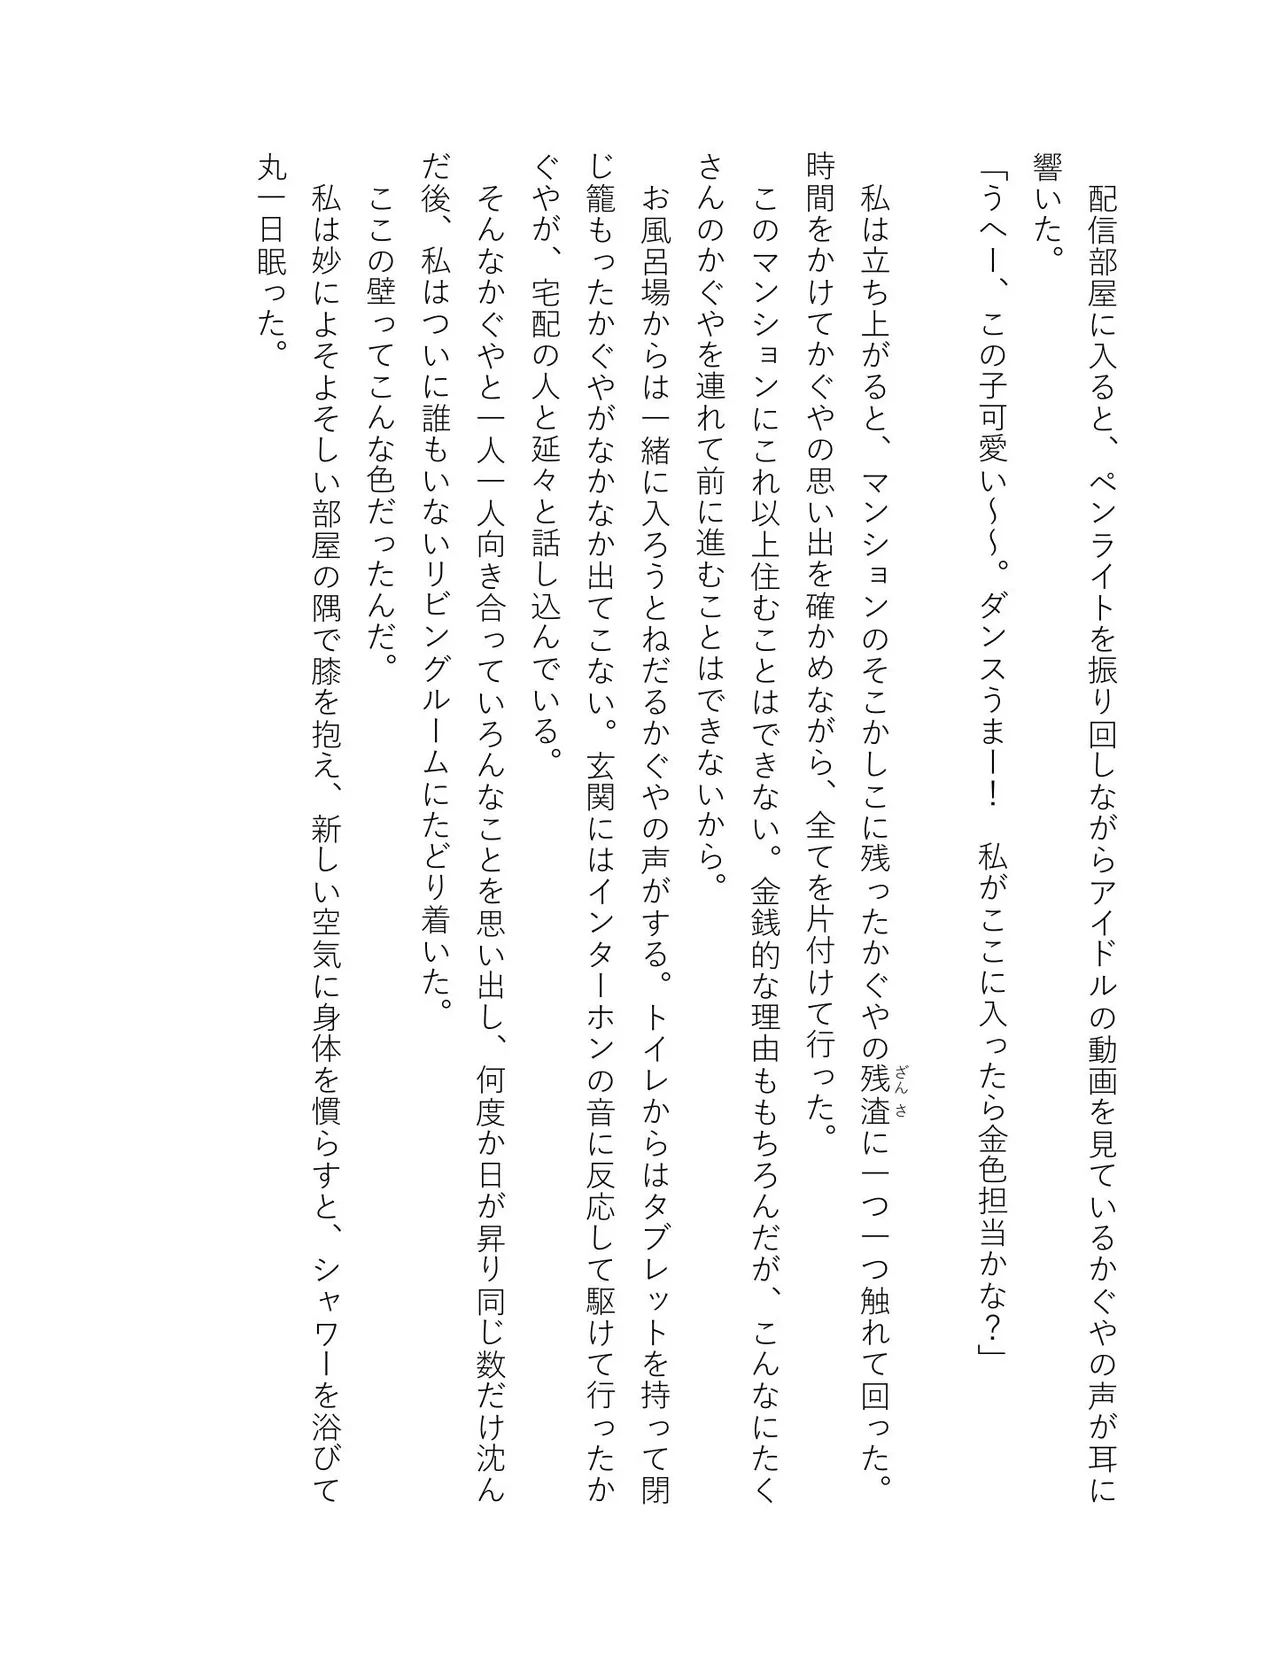 配信部屋に入ると、ペンライトを振り回しながらアイドルの動画を見ているかぐやの声が耳に
響いた。
「うへー、この子可愛い～～。ダンスうまー！　私がここに入ったら金色担当かな？」
　私は立ち上がると、マンションのそこかしこに残ったかぐやの残渣に一つ一つ触れて回った。
時間をかけてかぐやの思い出を確かめながら、全てを片付けて行った。
　このマンションにこれ以上住むことはできない。金銭的な理由ももちろんだが、こんなにたく
さんのかぐやを連れて前に進むことはできないから。
　お風呂場からは一緒に入ろうとねだるかぐやの声がする。トイレからはタブレットを持って閉
じ籠もったかぐやがなかなか出てこない。玄関にはインターホンの音に反応して駆けて行ったか
ぐやが、宅配の人と延々と話し込んでいる。
　そんなかぐやと一人一人向き合っていろんなことを思い出し、何度か日が昇り同じ数だけ沈ん
だ後、私はついに誰もいないリビングルームにたどり着いた。
　ここの壁ってこんな色だったんだ。
　私は妙によそよそしい部屋の隅で膝を抱え、新しい空気に身体を慣らすと、シャワーを浴びて
丸一日眠った。